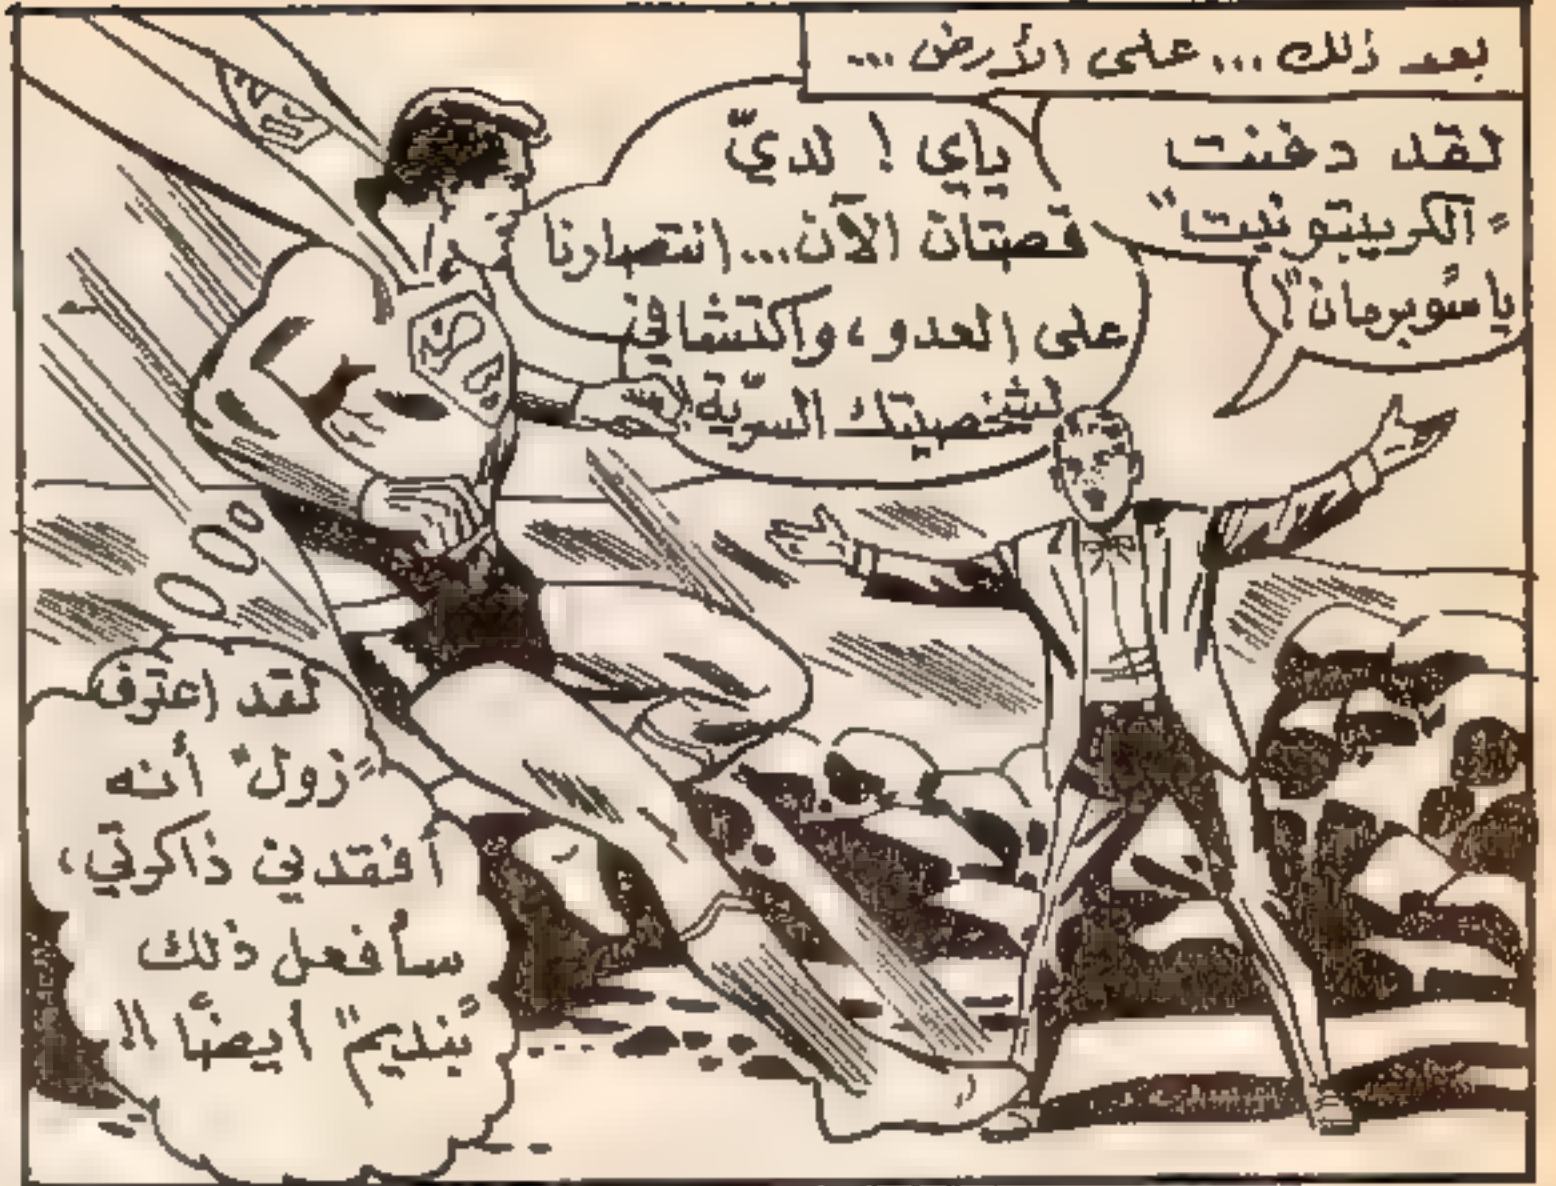 بعد ذلك... على الأرض...
لقد دفنت
"الكريبتونيت"
يا "سوبرمان"!
ياي! لديّ
قصتان الآن... انتصارنا
على العدو، واكتشافي
لشخصيتك السرّية!
لقد اعترف
"زول" أنه
أفقدني ذاكرتي،
سأفعل ذلك
"بنديم" أيضًا!!